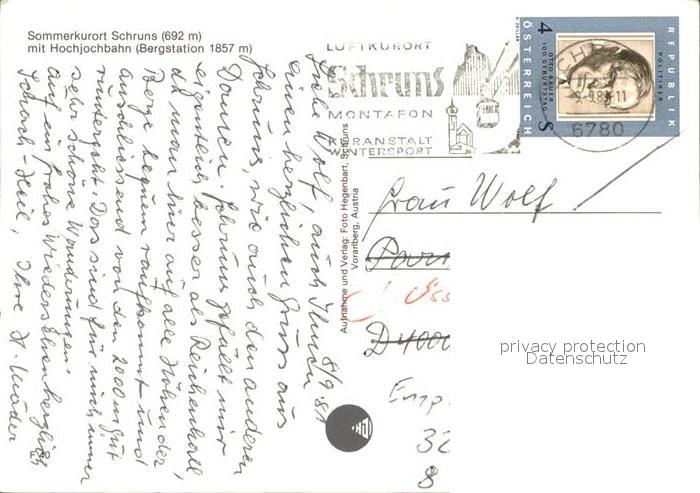 Sommerkurort Schruns (692 m)
mit Hochjochbahn (Bergstation 1857 m)
LUFTKURORT
Schruns
MONTAFON
KURANSTALT
WINTERSPORT
REPUBLIK
ÖSTERREICH
4 S
OTTO BAUER
100. GEBURTSTAG
POLITIKER
6780
Aufnahme und Verlag: Foto Hegenbart, Schruns
Vorarlberg, Austria
8/9 81
Liebe Frau Wolf, auch Ihnen
einen herzlichen Gruss aus
Schruns, wie auch den anderen
Damen. Schruns gefällt mir
eigentlich besser als Reichenhall
da man hier auf alle Höhen der
Berge bequem raufkommt und
anschliessend von den 2000m gut
runtergeht. Das sind für mich immer
sehr schöne Wanderungen.
auf ein frohes Wiedersehen herzlich
Ihre
Frau Wolf
D 4000
privacy protection
Datenschutz